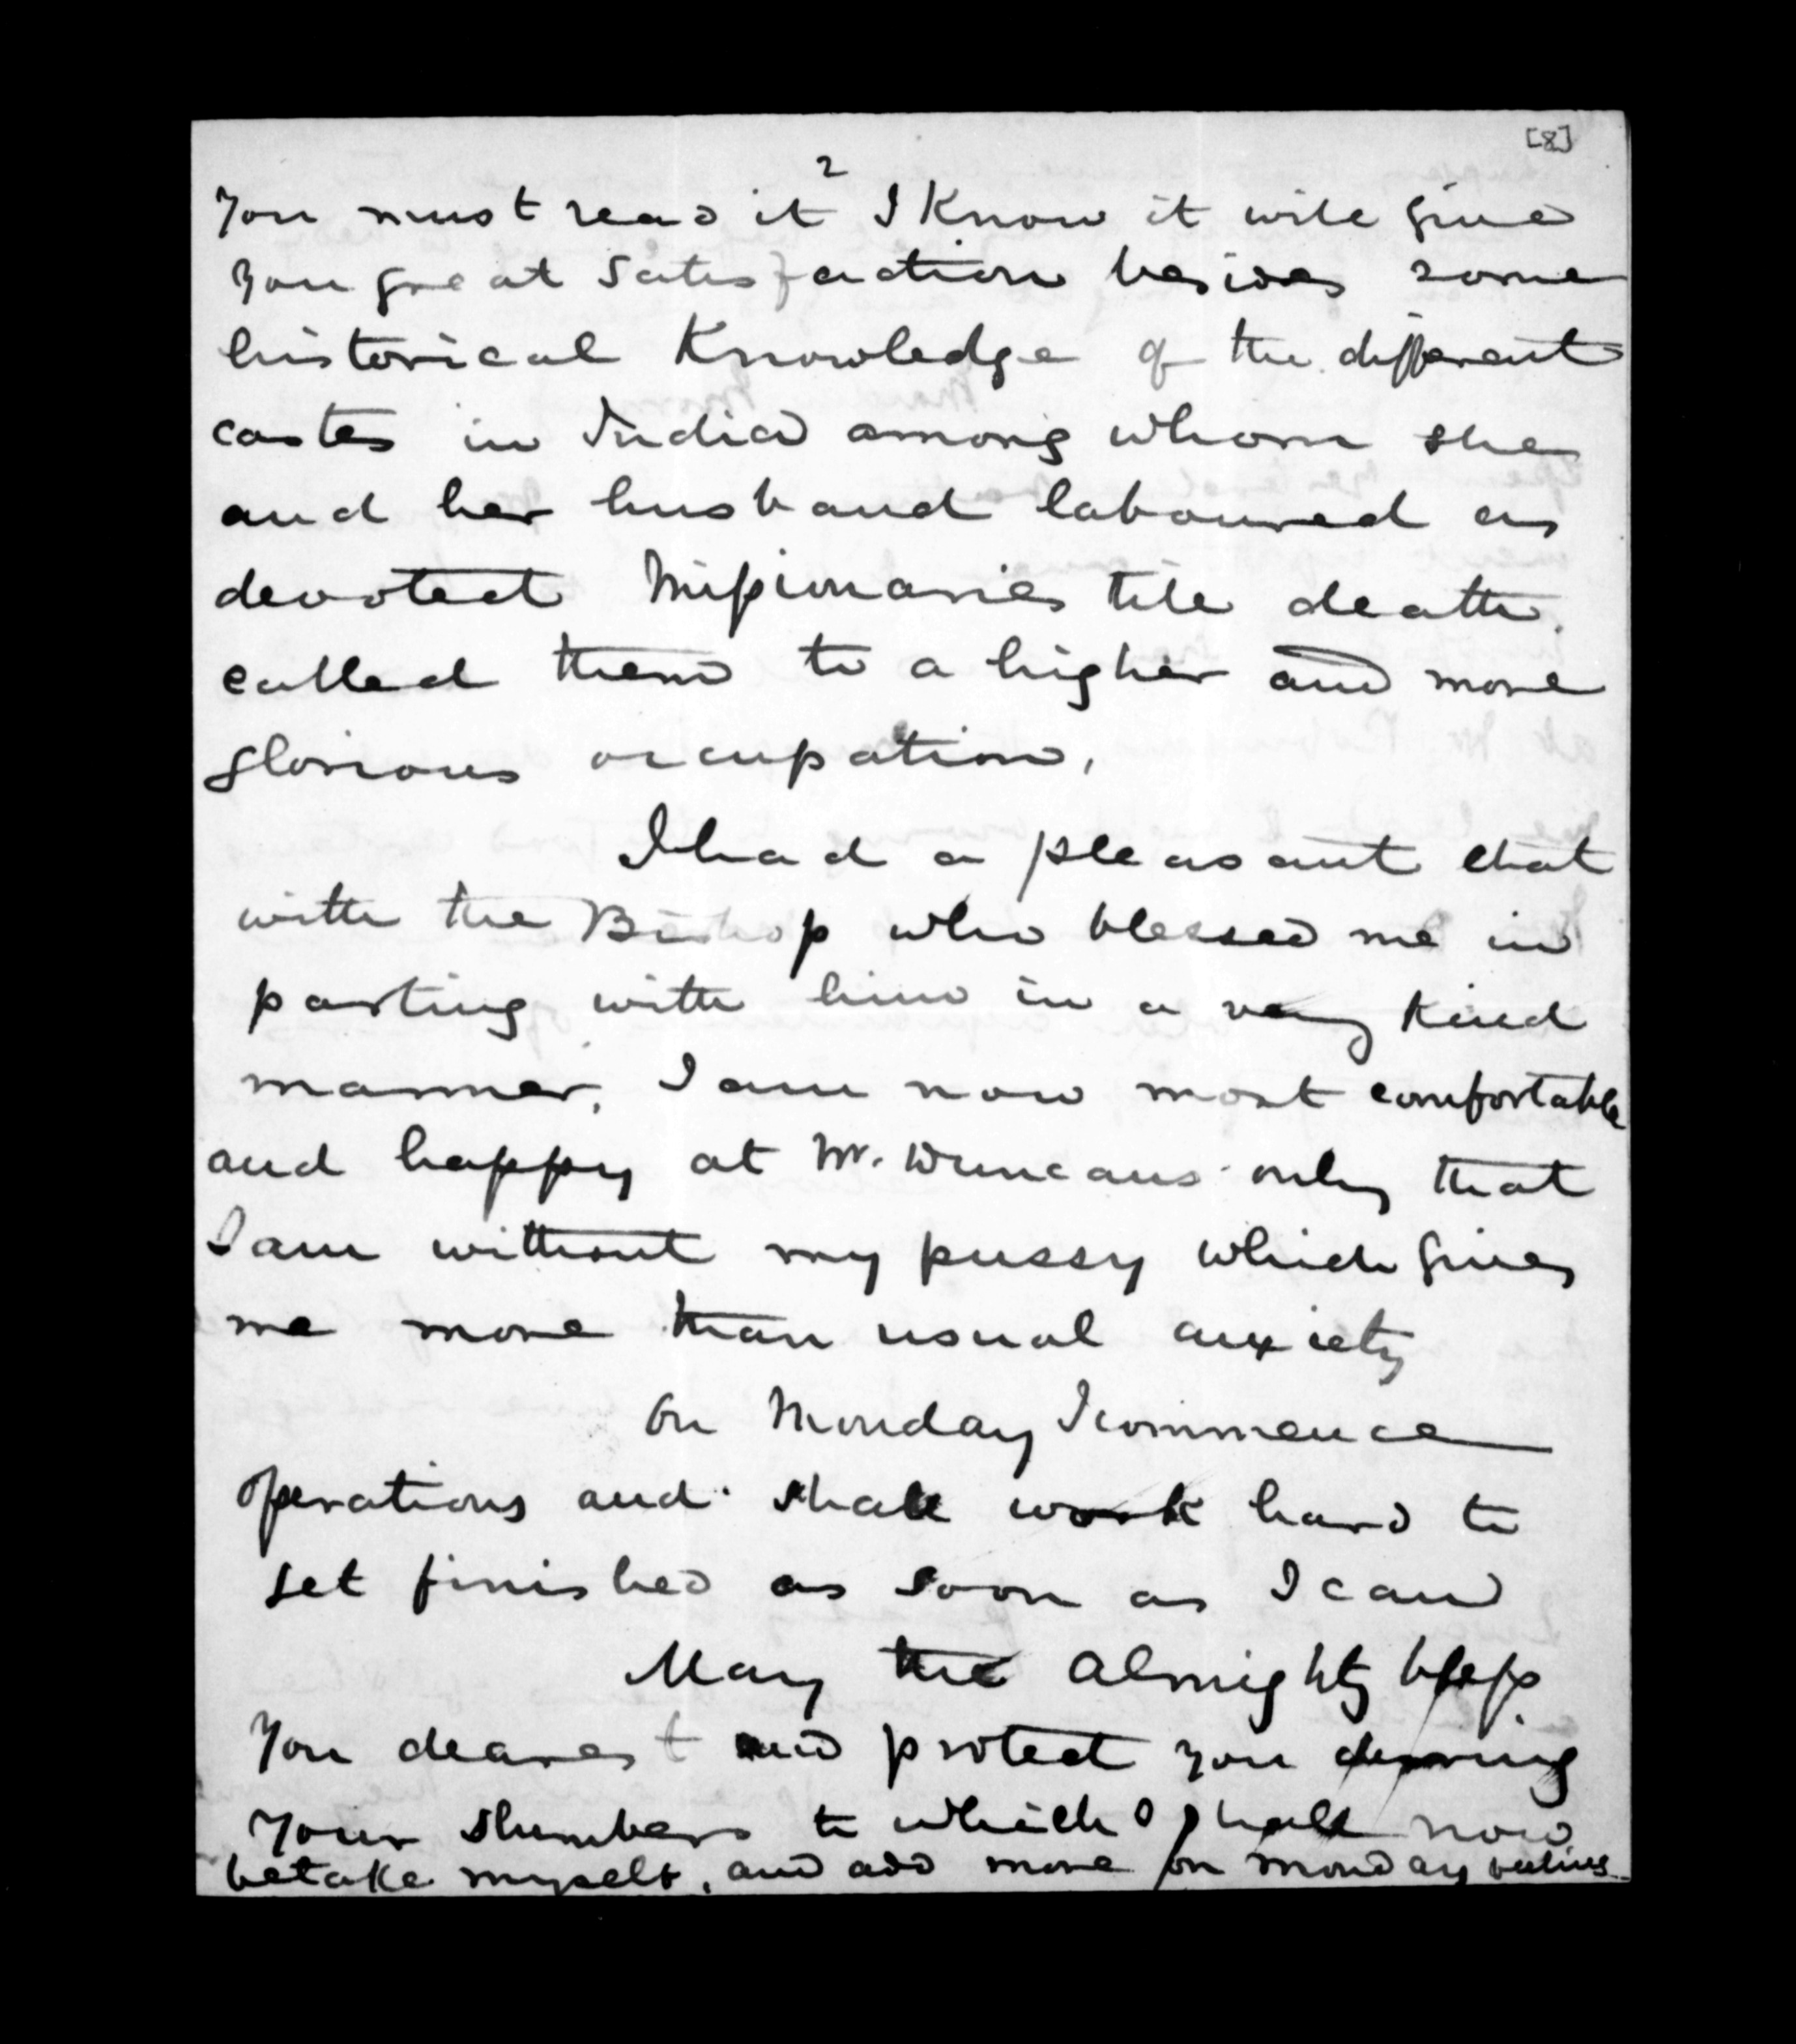 [8]
2
You must read it I Know it will give
you great satisfaction besides some
historical Knowledge of the different
castes in India among whom she
and her husband laboured as
devoted Missionaries till death.
called them to a higher and more
glorious occupation,
I had a pleasant chat
with the Bishop who blessed me in
parting with him in a very kind
manner, I am now most comfortable
and happy at Mr. Duncans only that
I am without my pussy which gives
me more than usual anxiety
On Monday I commence
operations and shall work hard to
get finished as soon as I can
May the Almighty bless
you dearest and protect you during
your slumbers to which I shall now
betake myself, and add more on monday